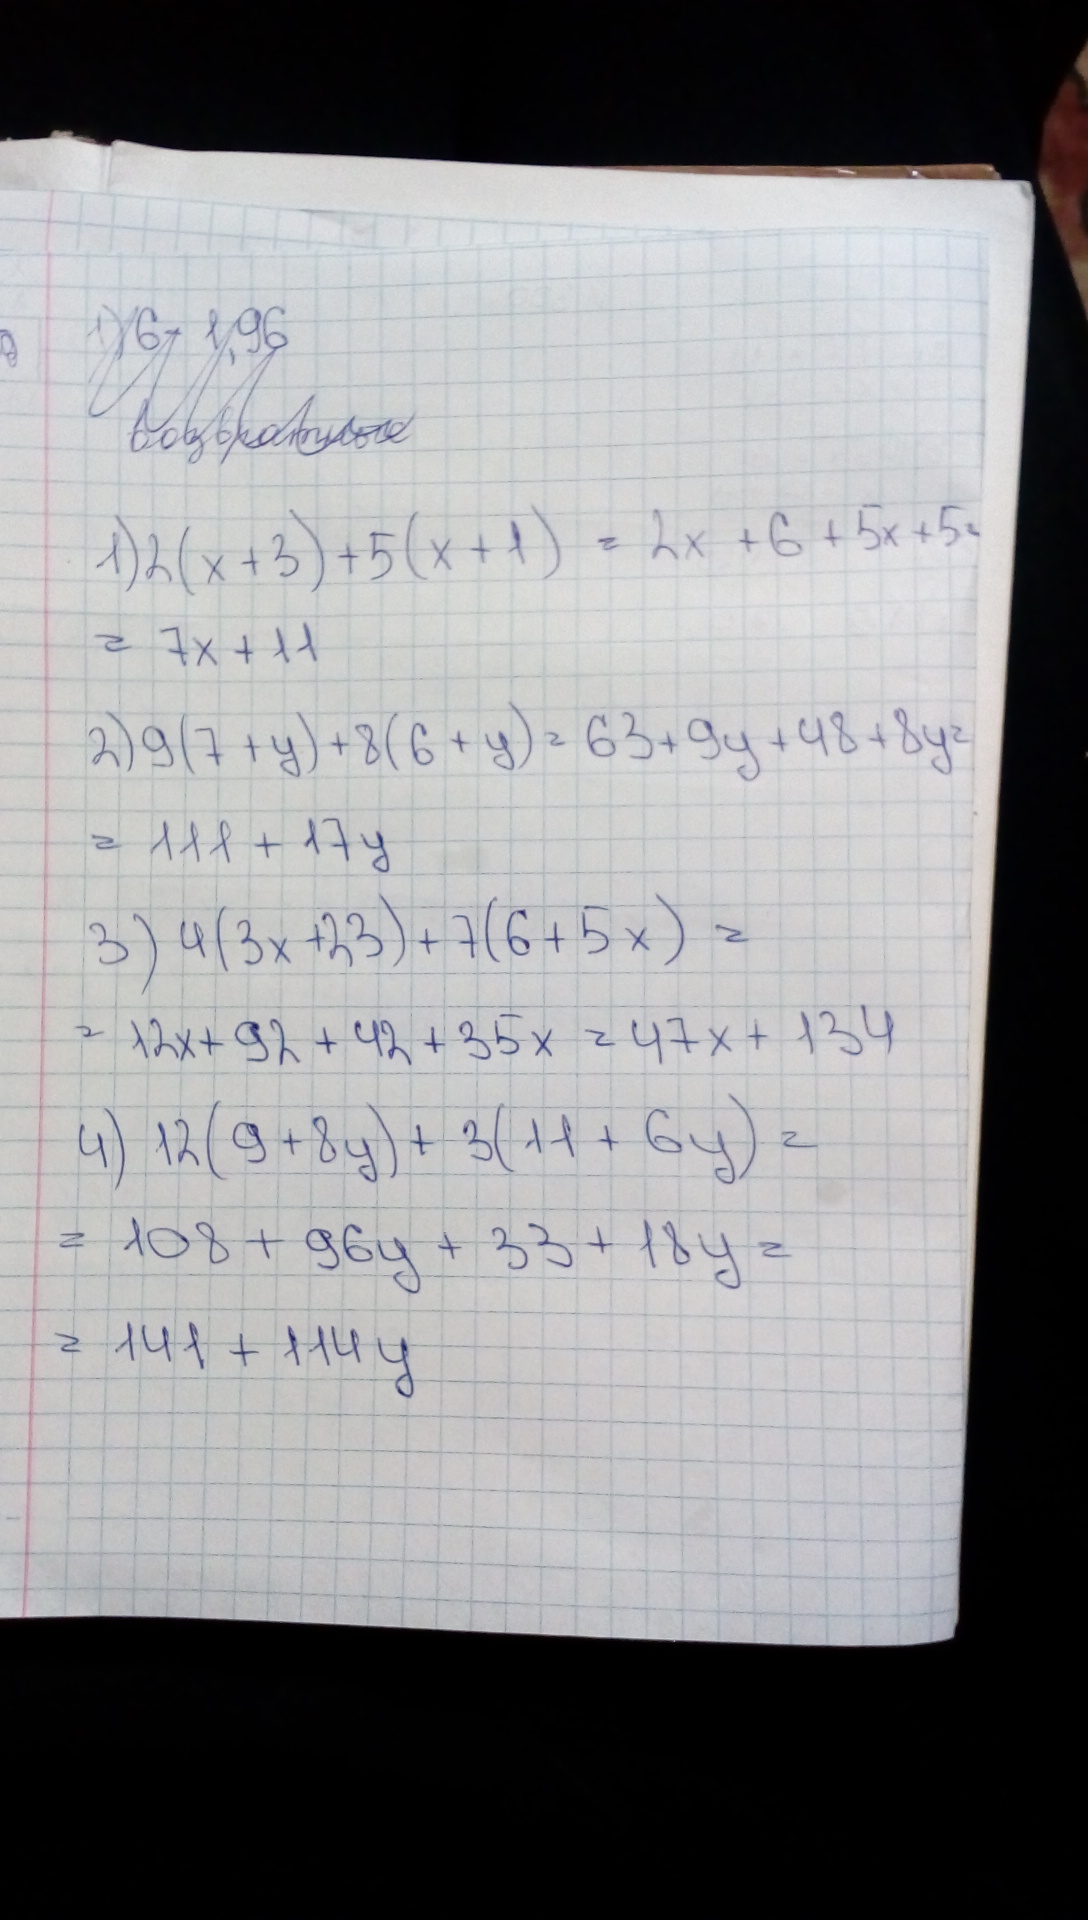 1) 6 - 1,96
1) 2(x+3)+5(x+1) = 2x +6 +5x+5=
= 7x+11
2) 9(7+y)+8(6+y)= 63+9y+48+8y=
= 111 + 17y
3) 4(3x+23)+7(6+5x) =
= 12x+92+42+35x = 47x+134
4) 12(9+8y)+ 3(11+ 6y) =
= 108 + 96y + 33 + 18y =
= 141 + 114y